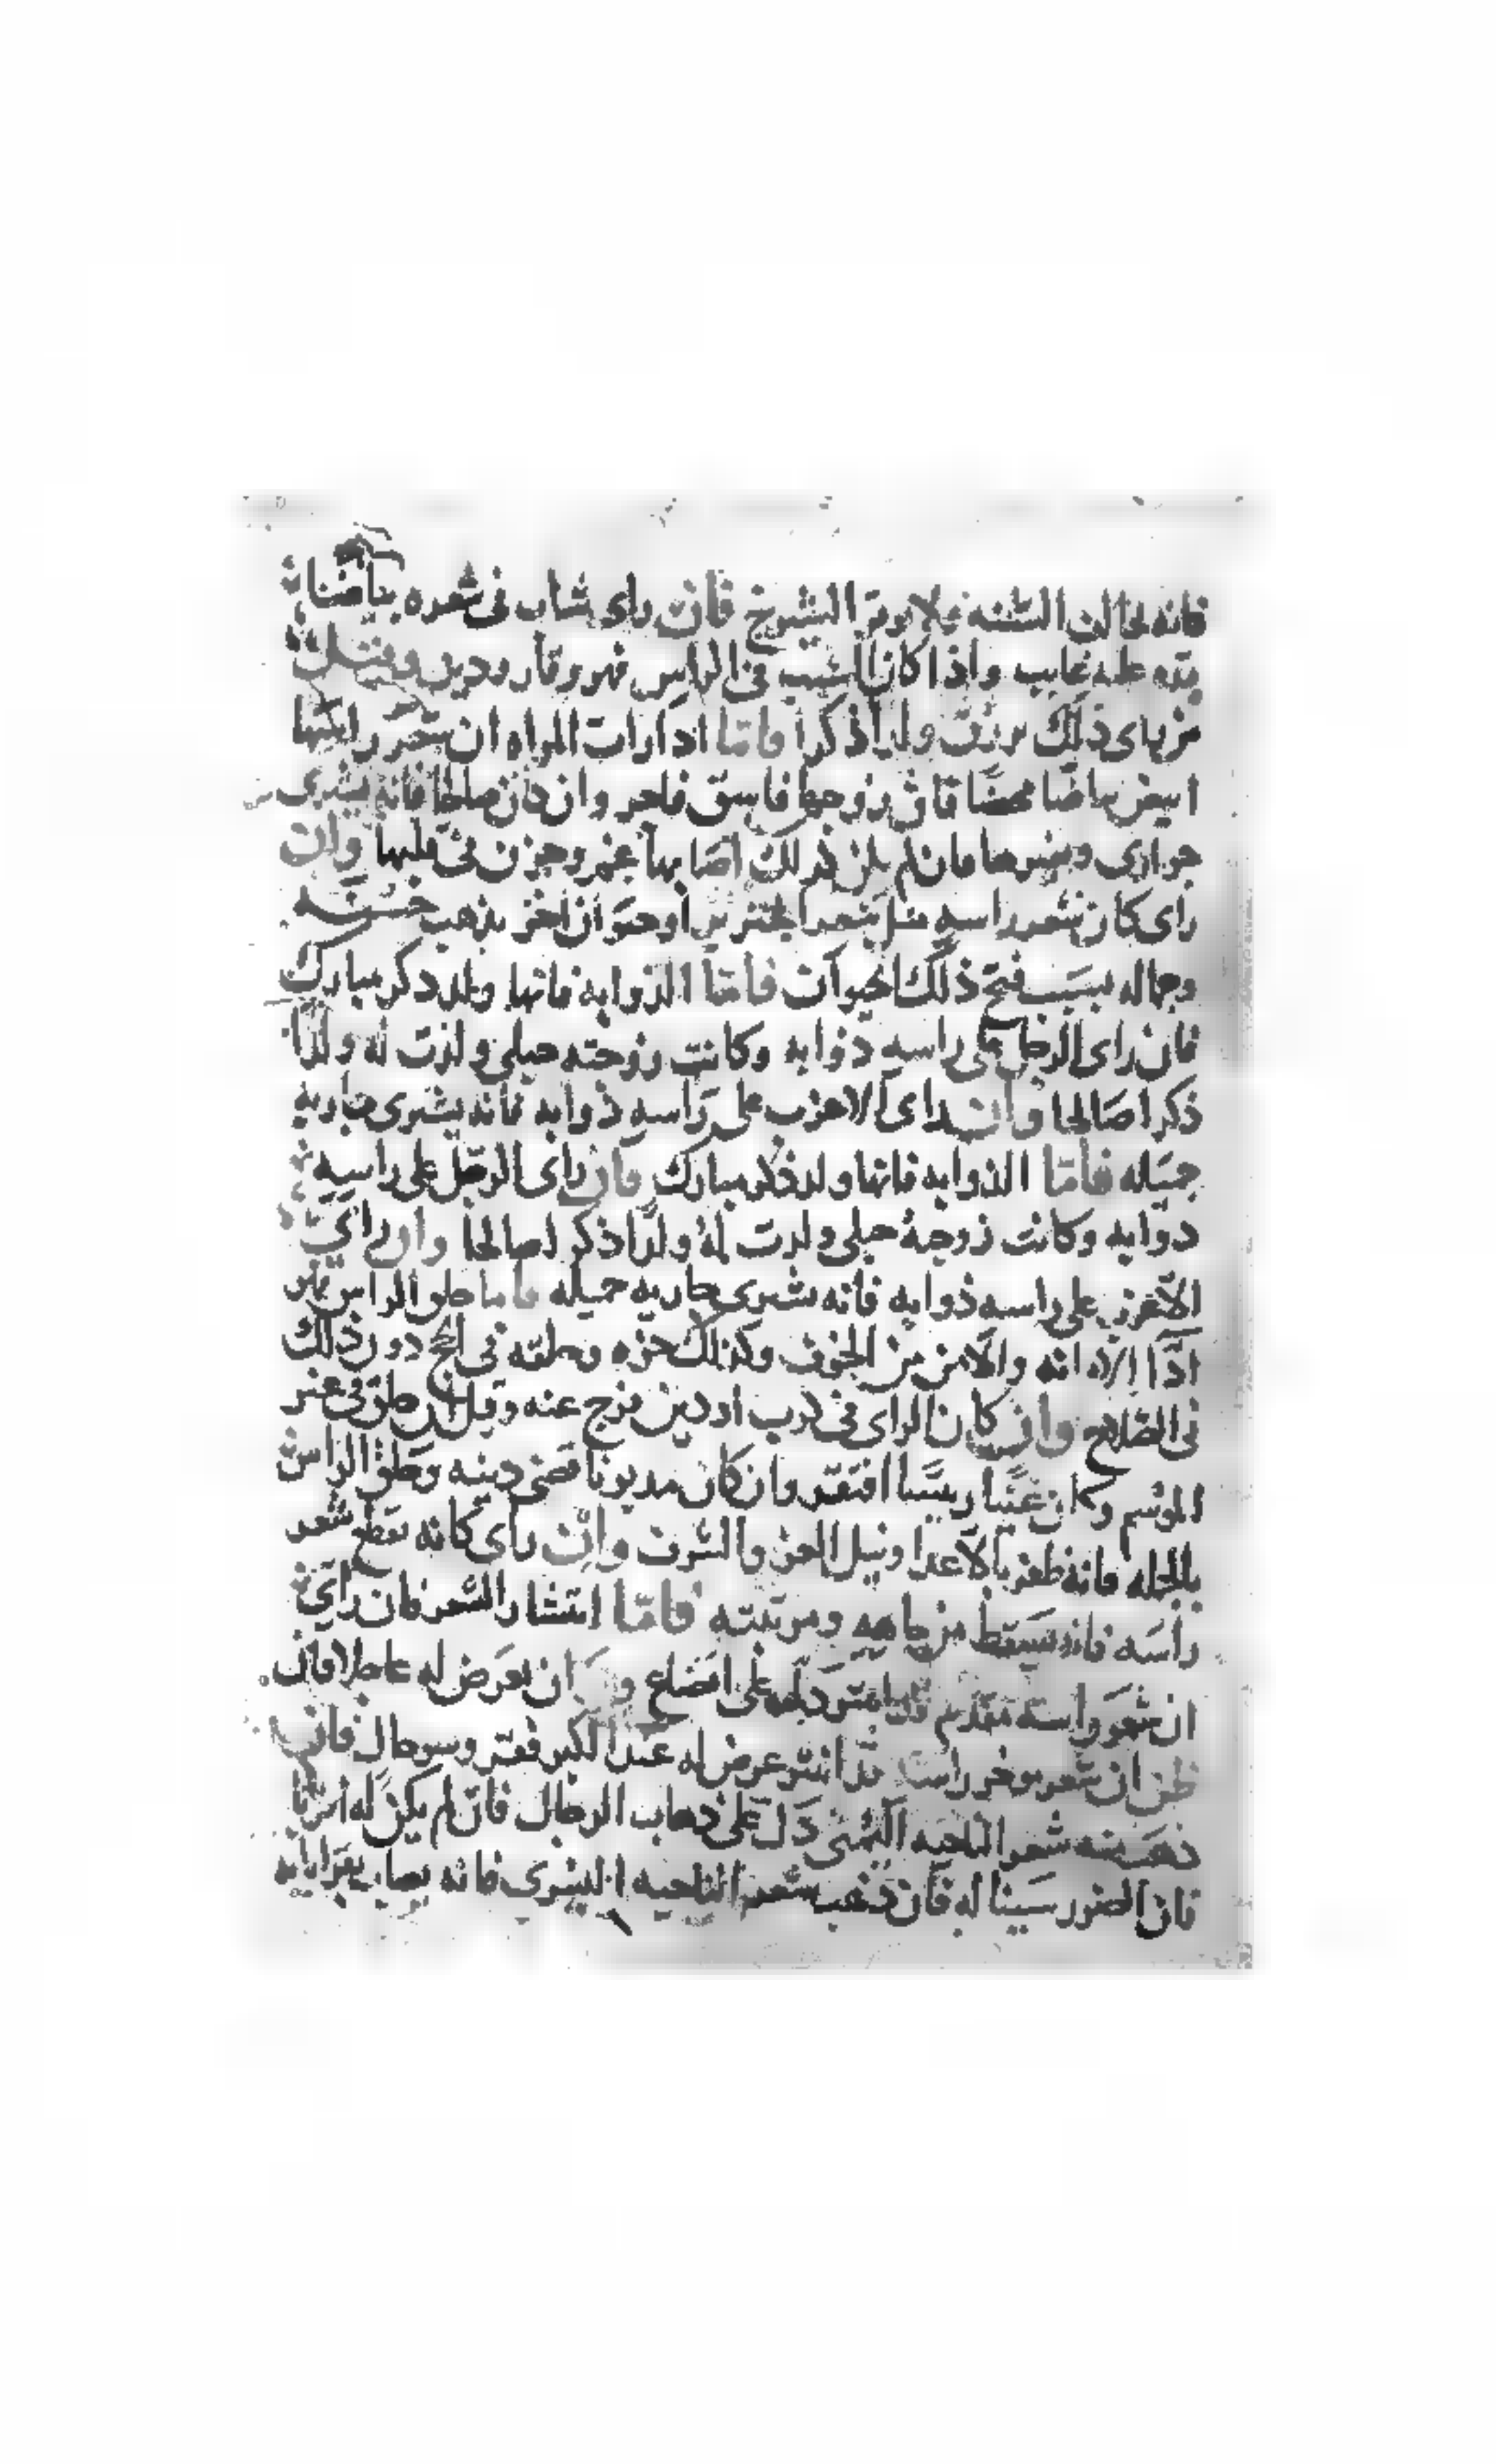 فانه يخالف السنه ولا يوقر الشيوخ فان راى شاب فى شعره بياضا
قدم عليه غايب واذا كان الشيب فى الراس فهو وقار ودين وقيل
من راى ذلك رزق ولدا ذكرا فاما اذا رات المراه ان شعر راسها
ابيض بياضا فان زوجها فاسق فاجر وان كان صالحا فانه يشترى
جوارى وغيرها فان لم يكن ذلك اصابها غم وحزن فى قلبها وان
راى كان شعر راسه مثل شعر الخنزير او حيوان اخر يذهب حسنه
وجماله بسبب قبح ذلك الحيوان فاما الذوابه فانها ولد ذكر مبارك
فان راى الرجل على راسه ذوابه وكانت زوجته حبلى ولدت له ولدا
ذكرا صالحا وان راى الاعزب على راسه ذوابه فانه يشترى جاريه
جميله فاما الذوابه فانها ولد ذكر مبارك فان راى الرجل على راسه
ذوابه وكانت زوجة حبلى ولدت له ولدا ذكرا صالحا وان راى
الاعزب على راسه ذوابه فانه يشترى جاريه جميله فاما حلق الراس
والامن من الخوف وكذلك جزه وحلقه فى الحج دون ذلك
فى الصلاح وان كان الراى فى كرب او دين فرج عنه وقيل ان حلق فى غير
الموسم وكان غنيا ريسا افتقر وان كان مديونا قضى دينه وحلق الراس
بالجمله فانه ظفر بالاعدا ونيل العز والشرف وان راى كانه يقطع شعر
راسه فانه يسقط من جاهه ومرتبته فاما انتشار الشعر فان راى
ان شعر راسه مقدم قد انتثر دل على ان يعرض له عاجلا فان
ظن ان شعر موخر راسه قد انتثر عرض له عند الكبر فقر وسو حال فان
ذهب منه شعر الناحيه اليمنى دل على ذهاب الرجال فان لم يكن له اقربا
فان الضرر سينا له فان ذهب شعر الناحيه اليسرى فانه يصاب بقراباته